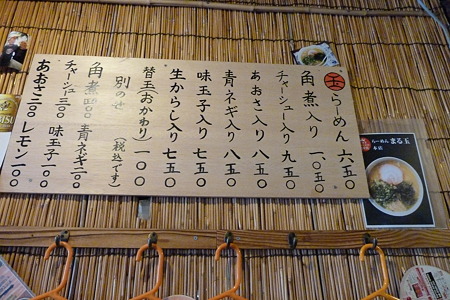 玉らーめん 六五〇
角煮入り 一、〇五〇
チャーシュー入り 九五〇
あおさ入り 八五〇
青ネギ入り 八五〇
味玉子入り 七五〇
生からし入り 七五〇
替玉(おかわり) 一〇〇
別のせ (税込です)
角煮 四〇〇 青ネギ 二〇〇
チャーシュー 三〇〇 味玉子 一〇〇
あおさ 二〇〇 レモン 一〇〇
らーめん まる玉
本店